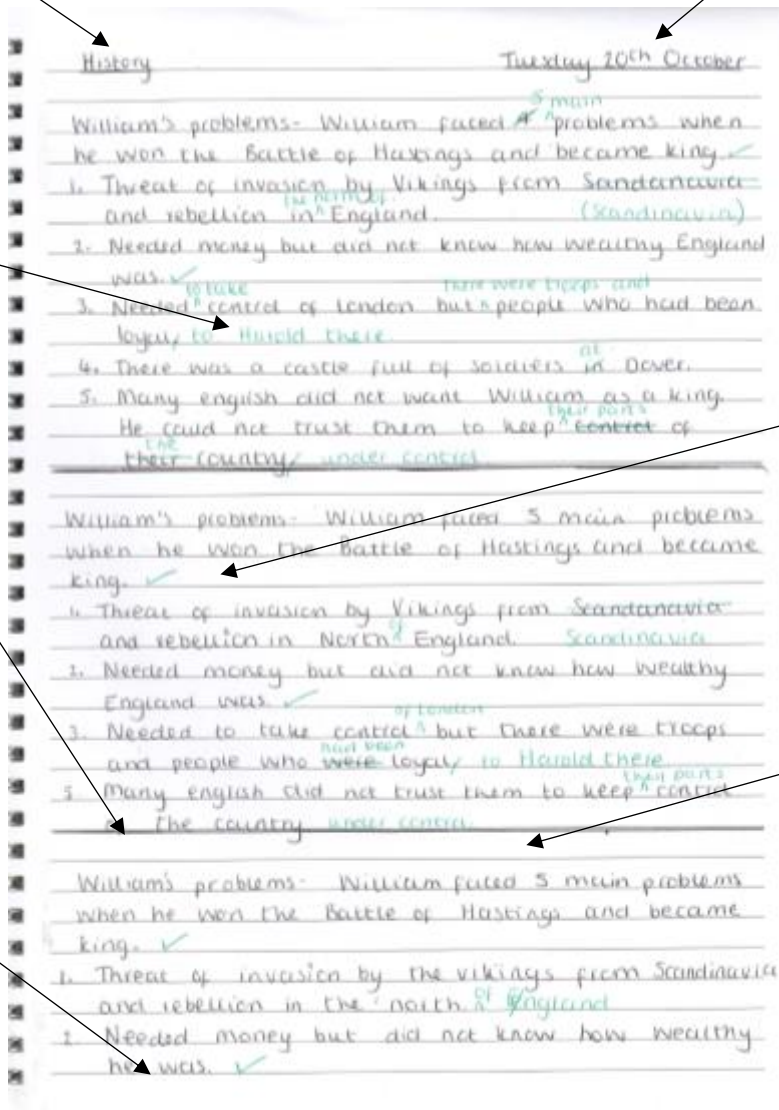 History Tuesday 20th October
5 main
William's problems- William faced 4 ^ problems when
he won the Battle of Hastings and became king. ✓
1. Threat of invasion by Vikings from Sandanavia
the north of
and rebellion in ^ England. (Scandinavia)
2. Needed money but did not know how wealthy England
was. ✓
to take there were troops and
3. Needed ^ control of London but ^ people who had been
loyal, to Harold there.
at
4. There was a castle full of soldiers in Dover.
5. Many english did not want William as a king.
their parts
He could not trust them to keep ^ control of
the
their country, under control
William's problems- William faced 5 main problems
when he won the Battle of Hastings and became
king. ✓
1. Threat of invasion by Vikings from Scandanavia
of
and rebellion in North ^ England. Scandinavia
2. Needed money but did not know how wealthy
England was. ✓
of London
3. Needed to take control ^ but there were troops
had been
and people who were loyal, to Harold there.
their parts
5 Many english did not trust them to keep ^ control
the country under control.
William's problems- William faced 5 main problems
when he won the Battle of Hastings and became
king. ✓
1. Threat of invasion by the vikings from Scandinavia
of
and rebellion in the north ^ England
2 Needed money but did not know how wealthy
he was. ✓